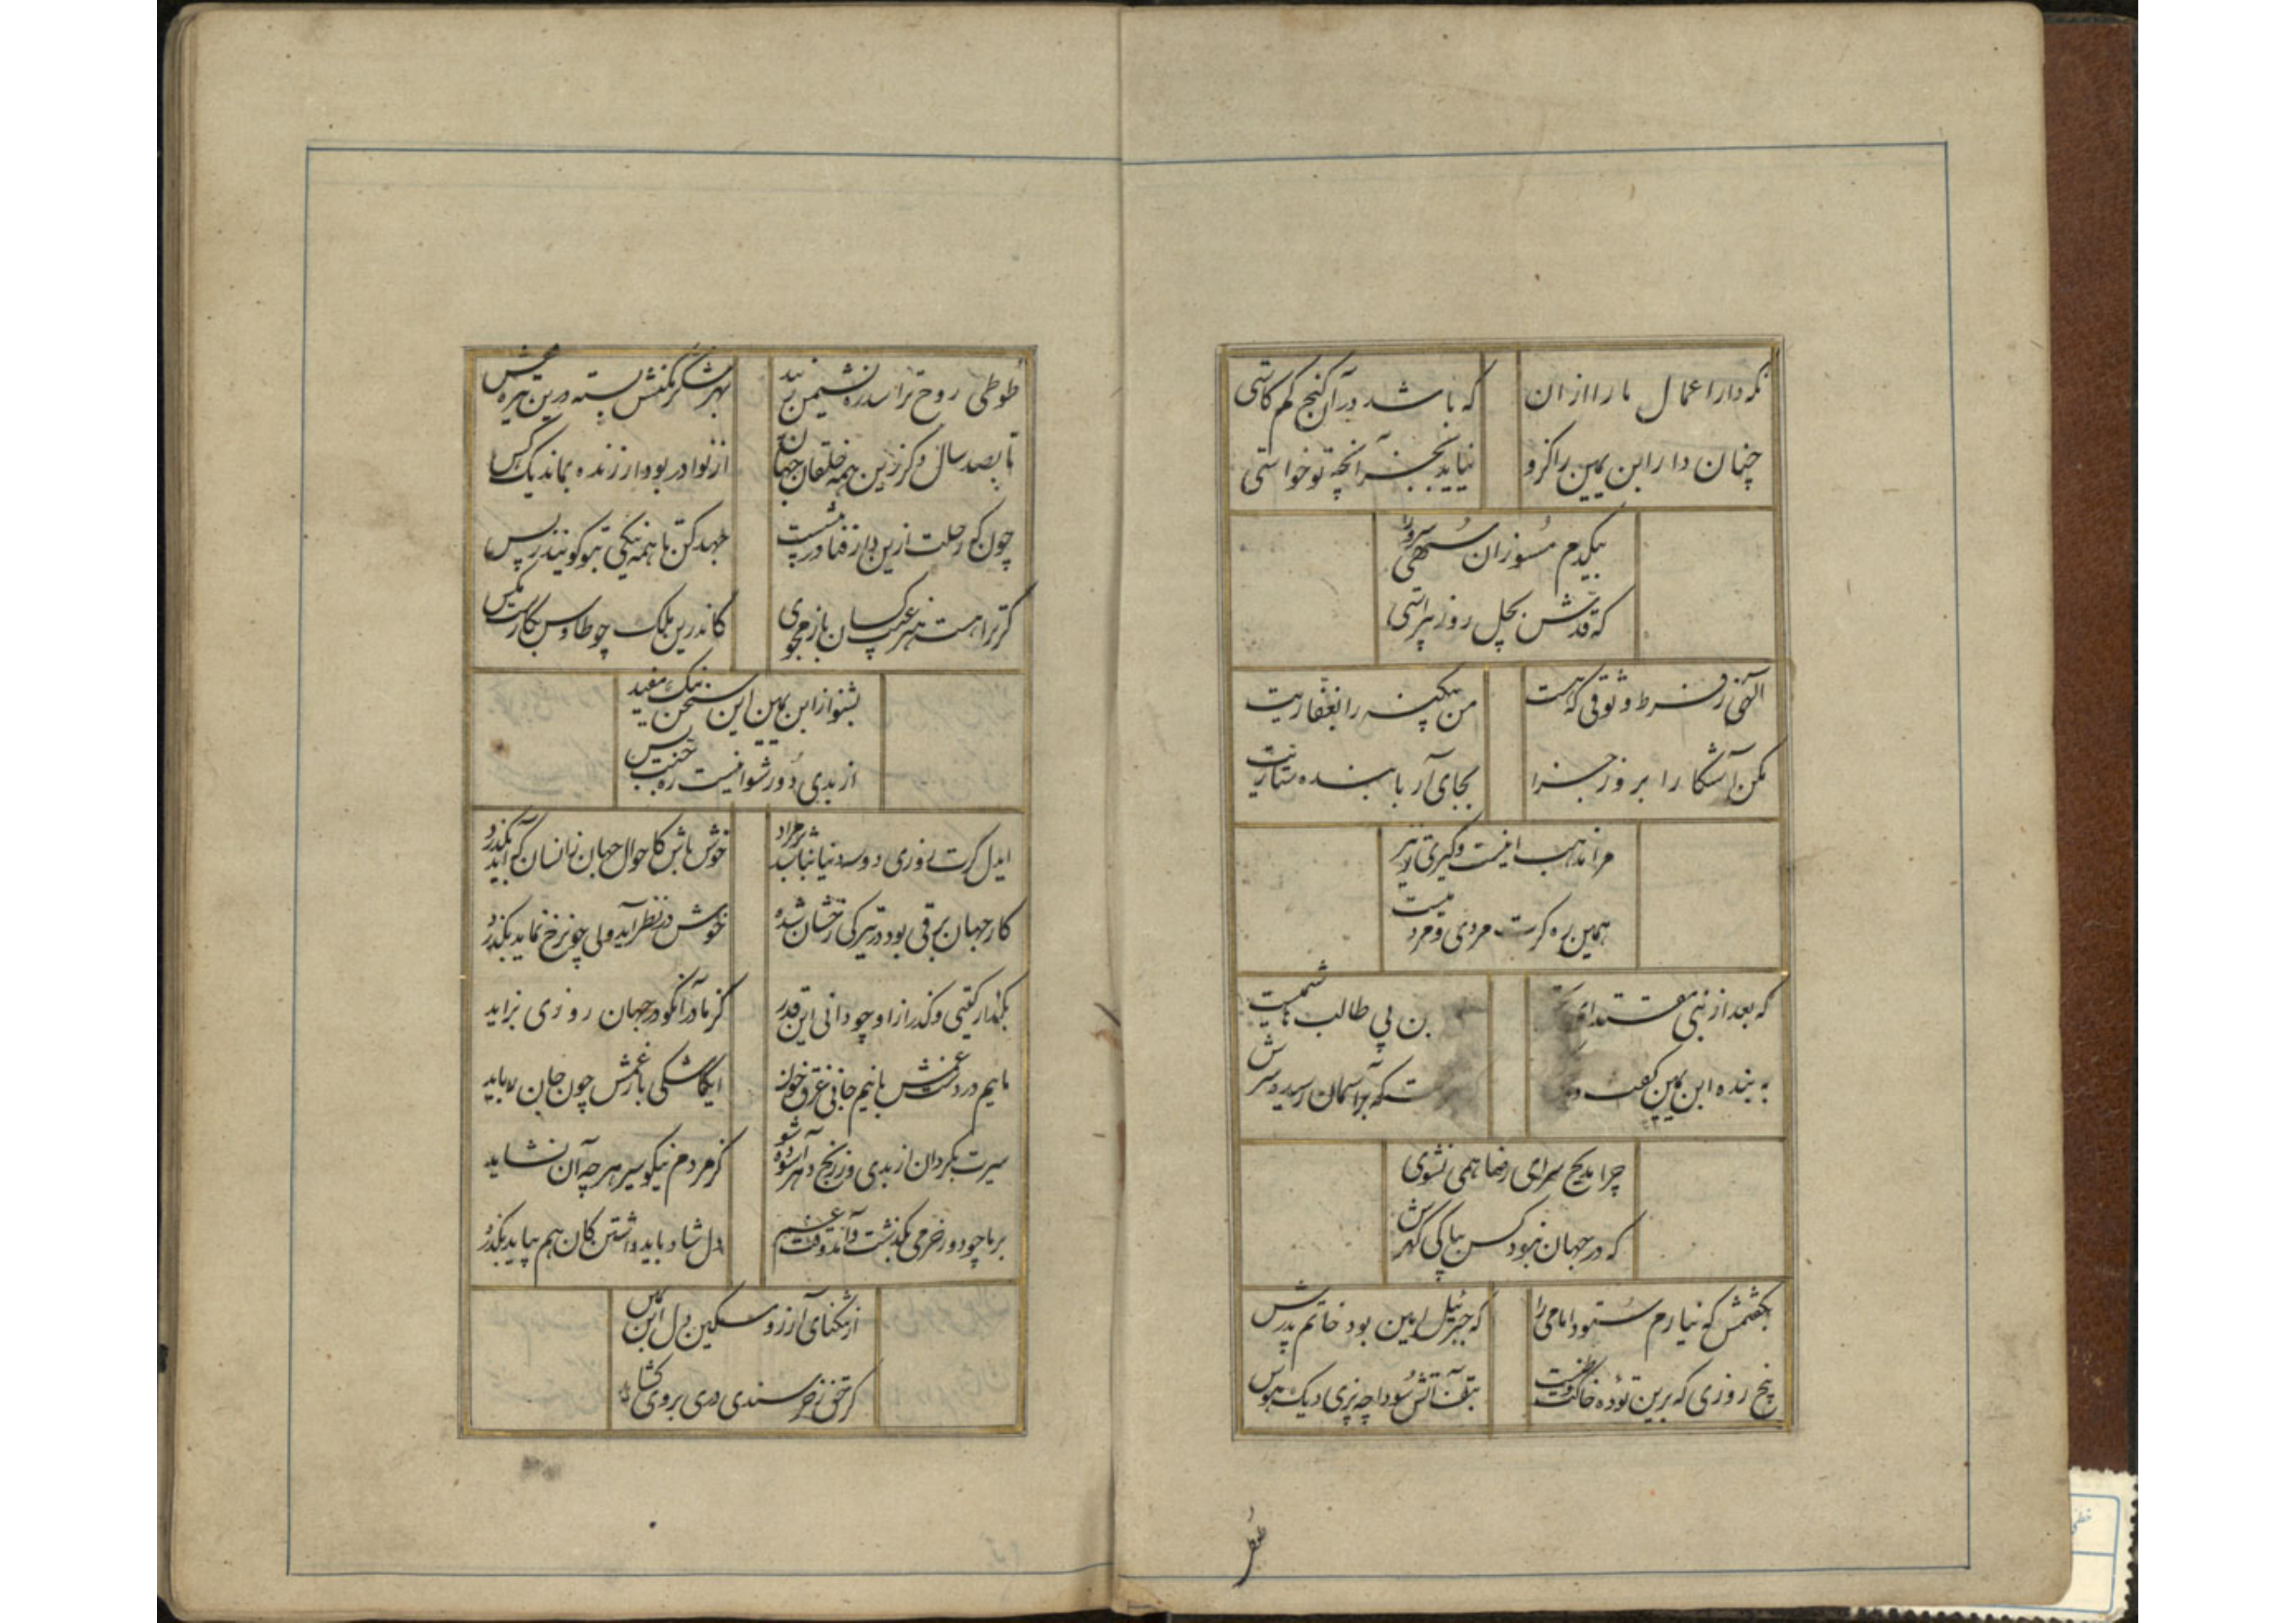 نگه دار اعمال ما را از ان
که باشد در آن کنج کم کاستی
چنان دار ابن یمین را کزو
نیاید بجز آنچه تو خواستی
بیکدم مسوزان سهی سرو را
که قدش بچل روز پیراستی
آلهی ز فرط وثوقی که هست
من بیکنه را بغفاریت
مکن آشکارا بروز جزا
بجای آر با بنده ستاریت
مرا مذهب اینست و کیری تو نیز
همین ره کرت مردی و مردمیست
که بعد از نبی مقتدای
بن بی طالب هاشمیست
به بنده ابن یمین کفت
که بر آسمان رسید سرش
چرا مدیح سرای رضا همی نشوی
که در جهان نبود کس بپاکی کهرش
بکفتمش که نیارم ستود امامی را
که جبرئیل امین بود خاتم پدرش
پنج روزی که برین توده خاکت وطنست
بتف آتش سودا چه پزی دیک هوس
طوطی
طوطی روح ترا سدره نشیمن زیبد
بهر شکر مکنش بسته درین تیره
تا بصد سال دکر زین همه خلقان جهان
از نوادر بود ار زنده بماند یک کس
چون که رحلت ازین دار فنا در پیشست
جهد کن تا همه نیکی ز تو کویند ز پس
کر ترا هست هنر عیب کسان باز مجوی
کاندرین ملک چو طاوس بکارست مکس
بشنو از ابن یمین این سخن نیک مفید
از بدی دور شو اینست ره جنت بس
ایدل کرت روزی دو سه دنیا نباشد بر مراد
خوش باش کاحوال جهان زانسان که آید بکذرد
کار جهان برقی بود در تیرکی رخشان شده
خوش در نظر آید ولی چون رخ نماید بکذرد
بکذار کیتی و کذر از او چو دانی این قدر
کز مادر آنکو در جهان روزی بزاید
مائیم در دست غمش با نیم جانی غرق خون
ایکاشکی بار غمش چون جان
سیرت بکردان از بدی وز رنج دهر آسوده شو
کز مردم نیکو سیر هر چه آن نشاید
بر ما چو دور خرمی بکذشت و آمد وقت غم
دل شاد باید داشتن کان هم بپاید بکذرد
از تنکنای آرزو مسکین دل ابن
کر حق ز خرسندی دری بر وی کشاید